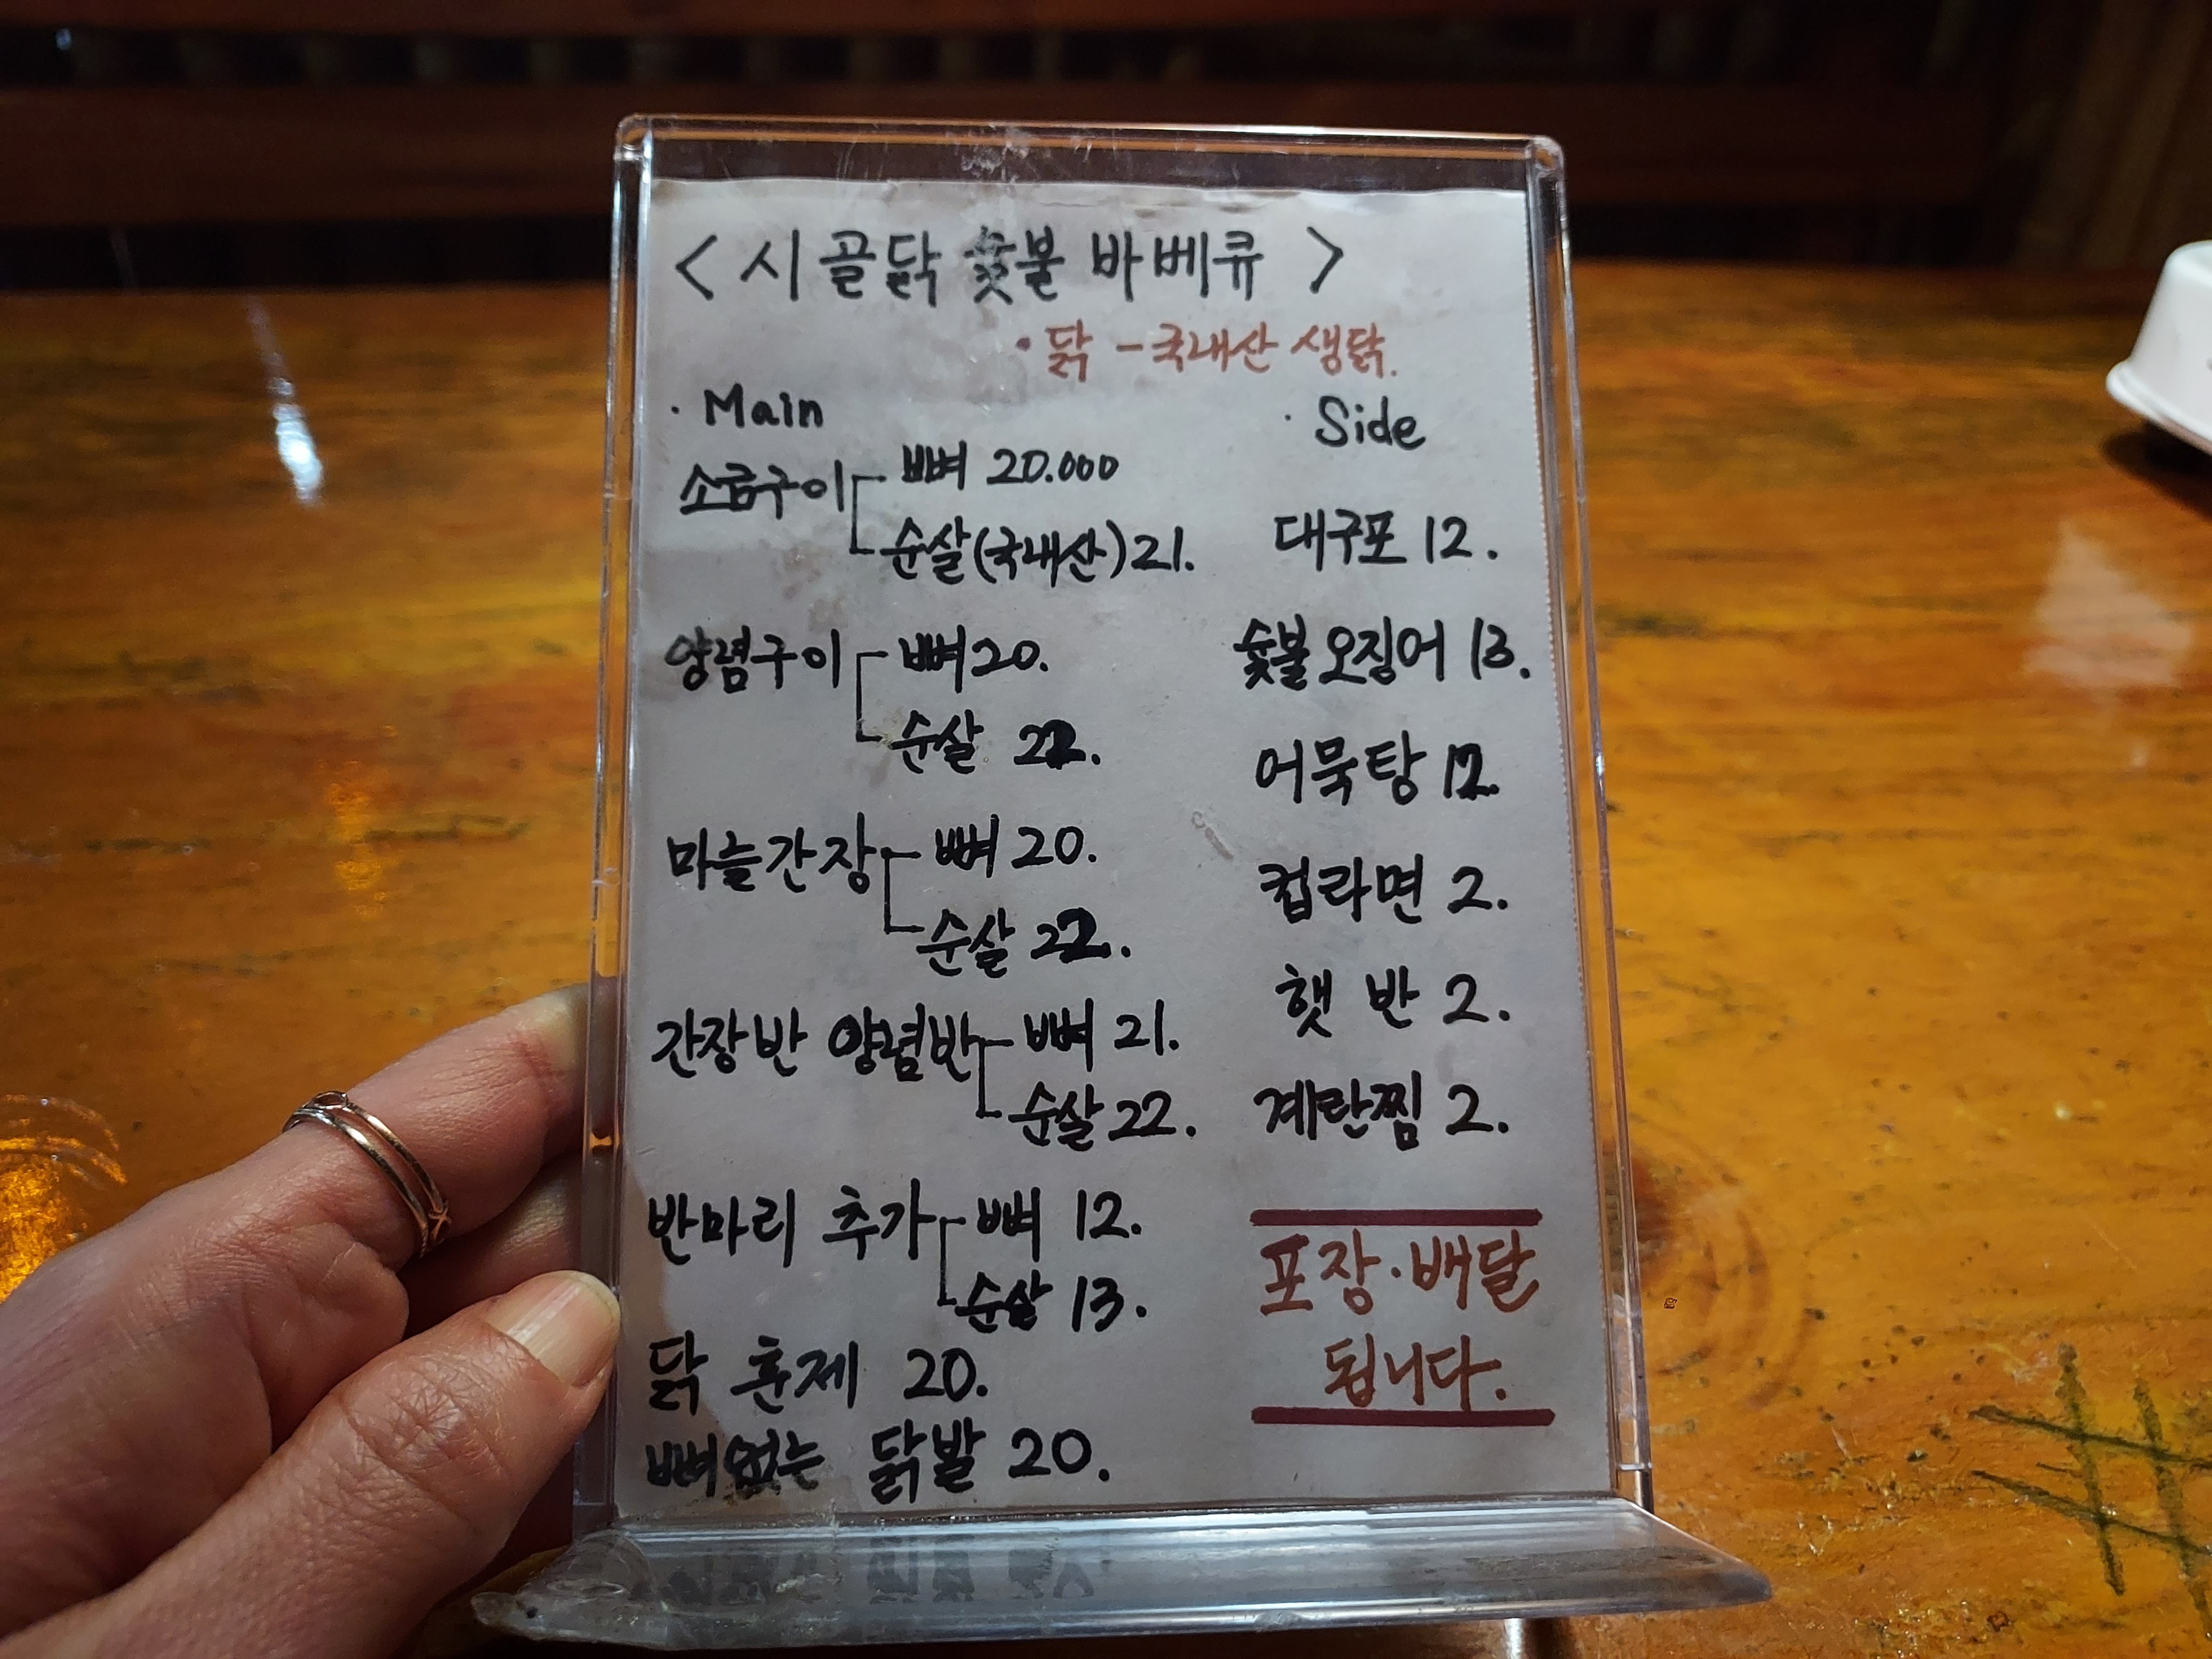 < 시골닭 숯불 바베큐 >
· 닭 - 국내산 생닭.
· Main
소금구이 뼈 20.000
순살(국내산) 21.
양념구이 뼈 20.
순살 22.
마늘간장 뼈 20.
순살 22.
간장반 양념반 뼈 21.
순살 22.
반마리 추가 뼈 12.
순살 13.
닭 훈제 20.
뼈없는 닭발 20.
· Side
대구포 12.
숯불오징어 13.
어묵탕 12.
컵라면 2.
햇반 2.
계란찜 2.
포장·배달
됩니다.